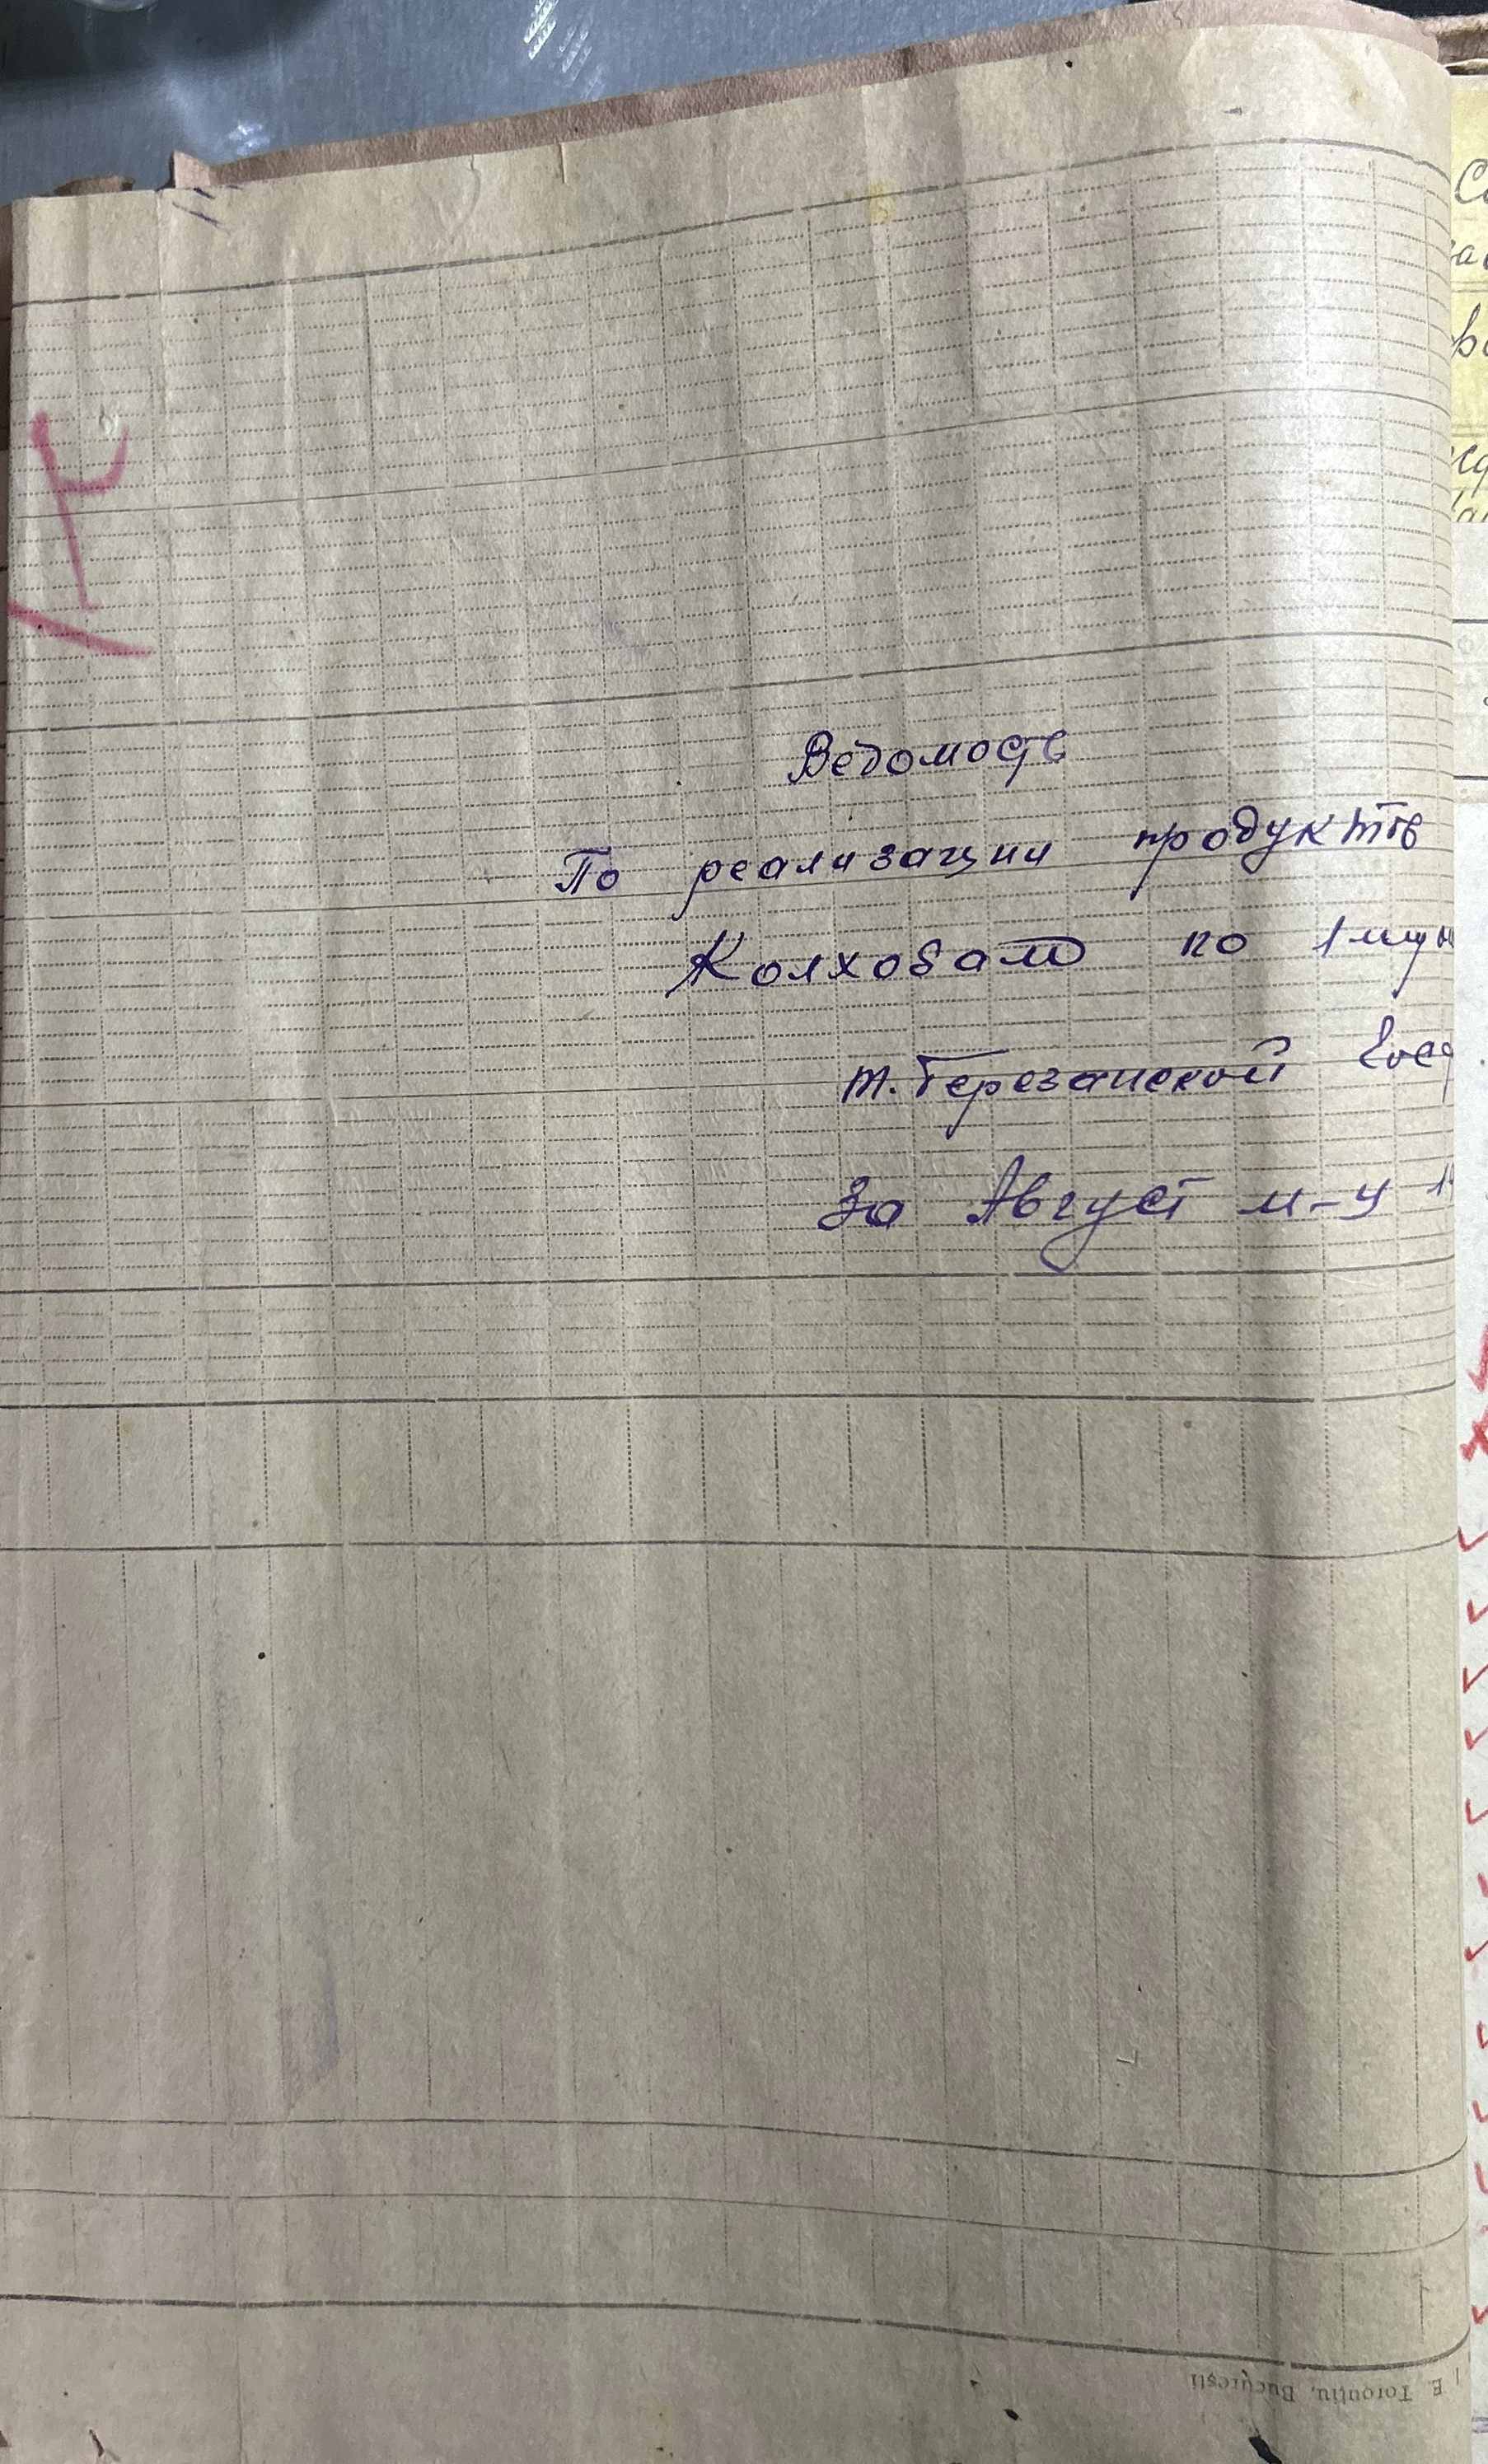 Ведомость
По реализации продуктов
Колхозам по 1 пун
т. Березанской Госд
За Август м-ц 1
E. Torouţiu, Bucureşti